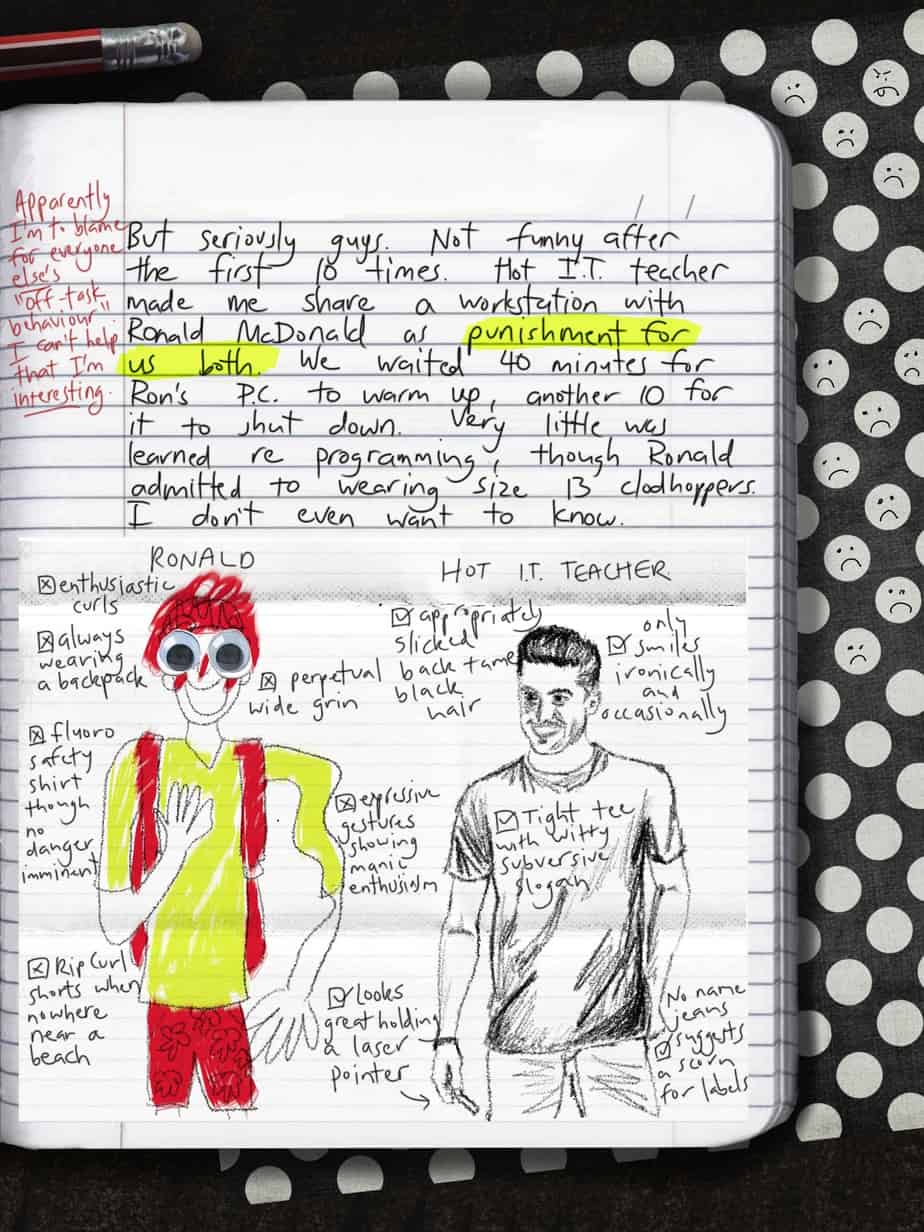 Apparently
I'm to blame
for everyone
else's
"off-task
behaviour".
I can't help
that I'm
interesting.
But seriously guys. Not funny after
the first 10 times. Hot I.T. teacher
made me share a workstation with
Ronald McDonald as punishment for
us both. We waited 40 minutes for
Ron's P.C. to warm up, another 10 for
it to shut down. Very little was
learned re programming, though Ronald
admitted to wearing size 13 clodhoppers.
I don't even want to know.
RONALD
enthusiastic
curls
always
wearing
a backpack
perpetual
wide grin
fluoro
safety
shirt
though
no
danger
imminent
expressive
gestures
showing
manic
enthusiasm
Rip Curl
shorts when
nowhere
near a
beach
HOT I.T. TEACHER
appropriately
slicked
back tame
black
hair
only
smiles
ironically
and
occasionally
Tight tee
with witty
subversive
slogan
looks
great holding
a laser
pointer
No name
jeans
suggests
a scorn
for labels